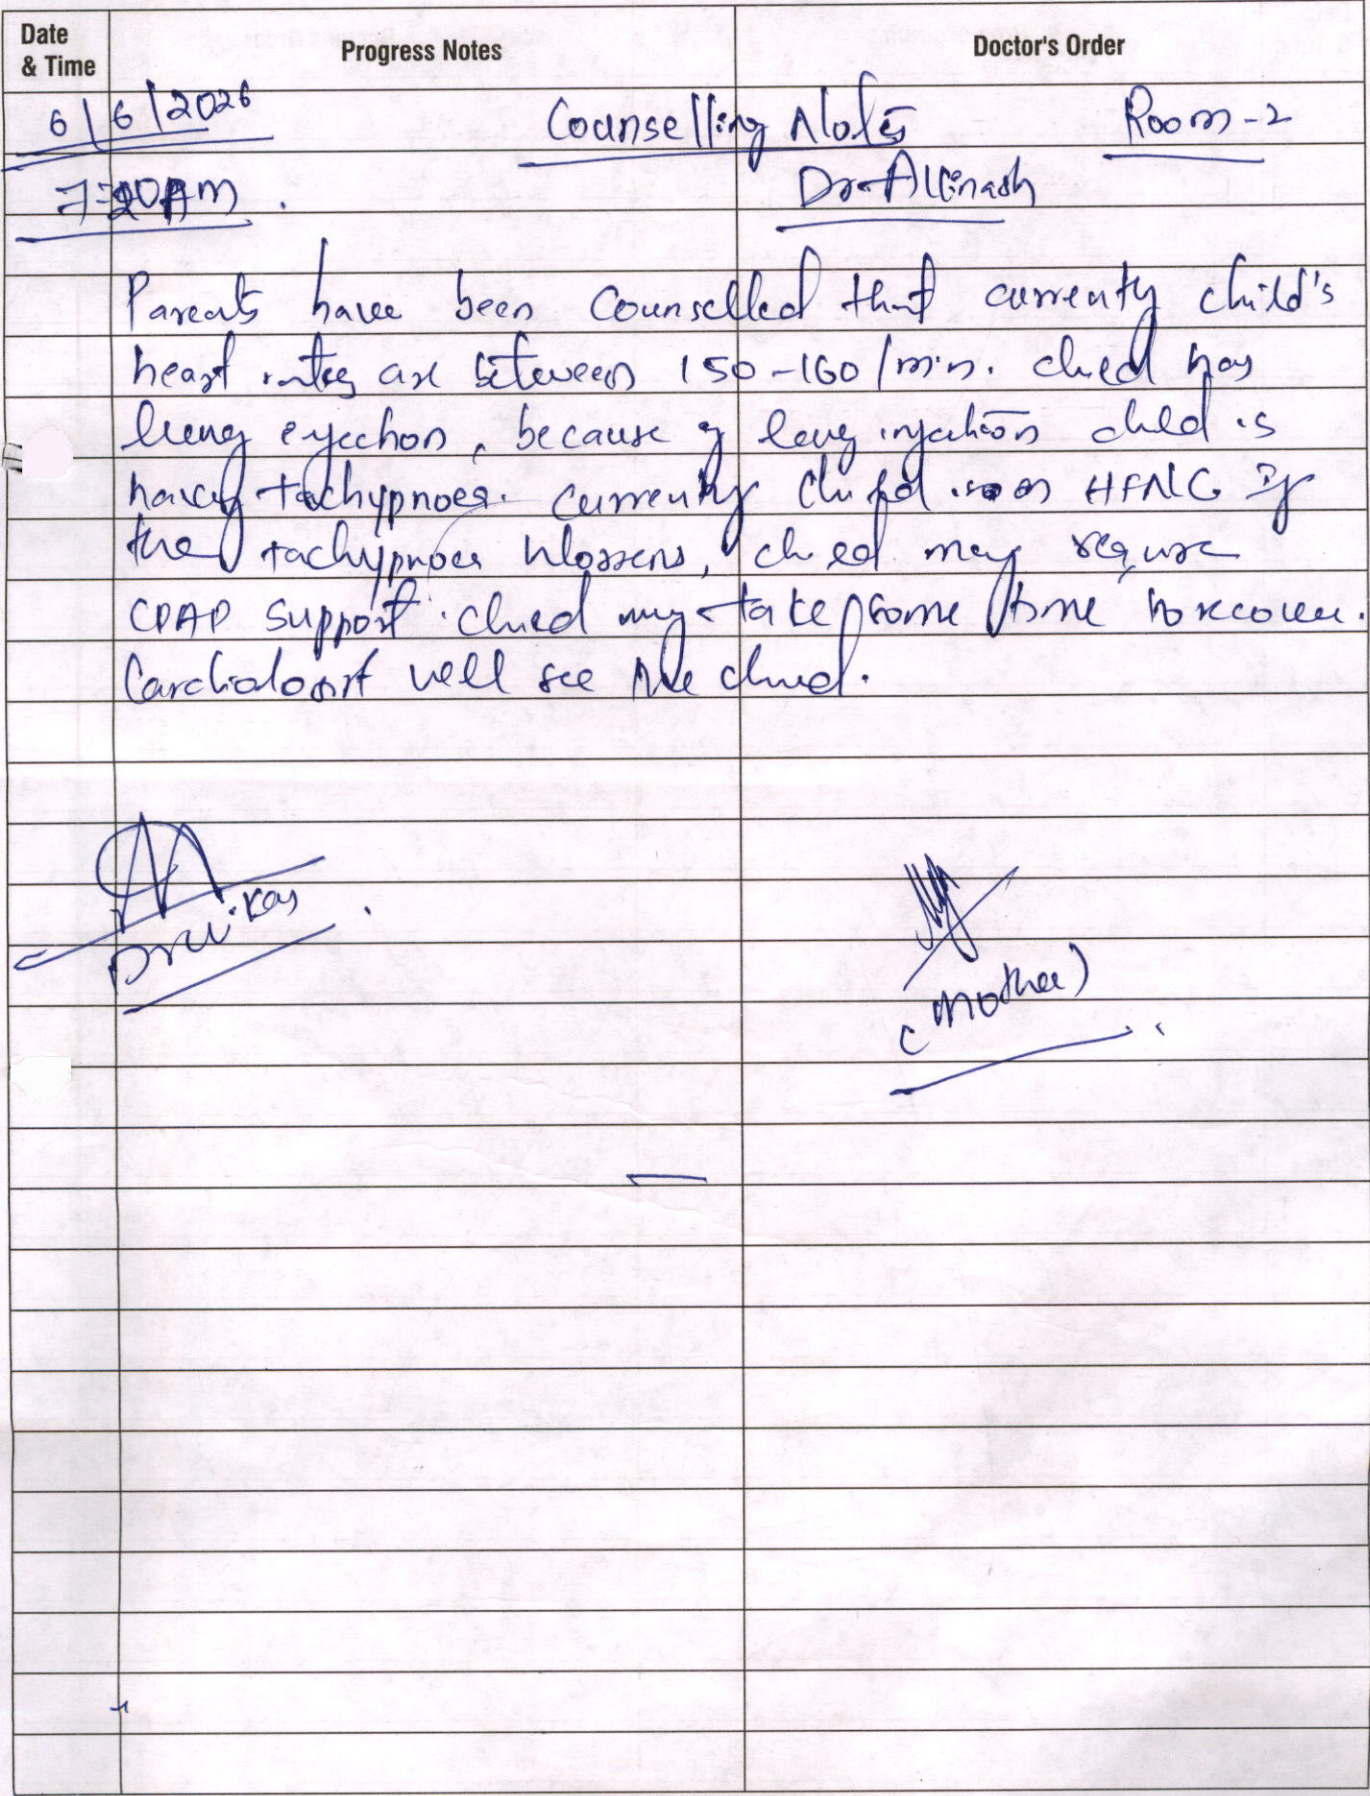 Date & Time Progress Notes Doctor's Order
6/6/2026 Counselling Notes Room-2
7:20AM. Dr. Avinash
Parents have been Counselled that currently child's
heart rates are between 150-160/min. child has
lung , because of lung injection child is
having tachypnoea. Currently child is on HFNC If
the tachypnoea Worsens, child may require
CPAP support. child may take some time to recover.
Cardiologist will see the child.
Dr
(Mother)